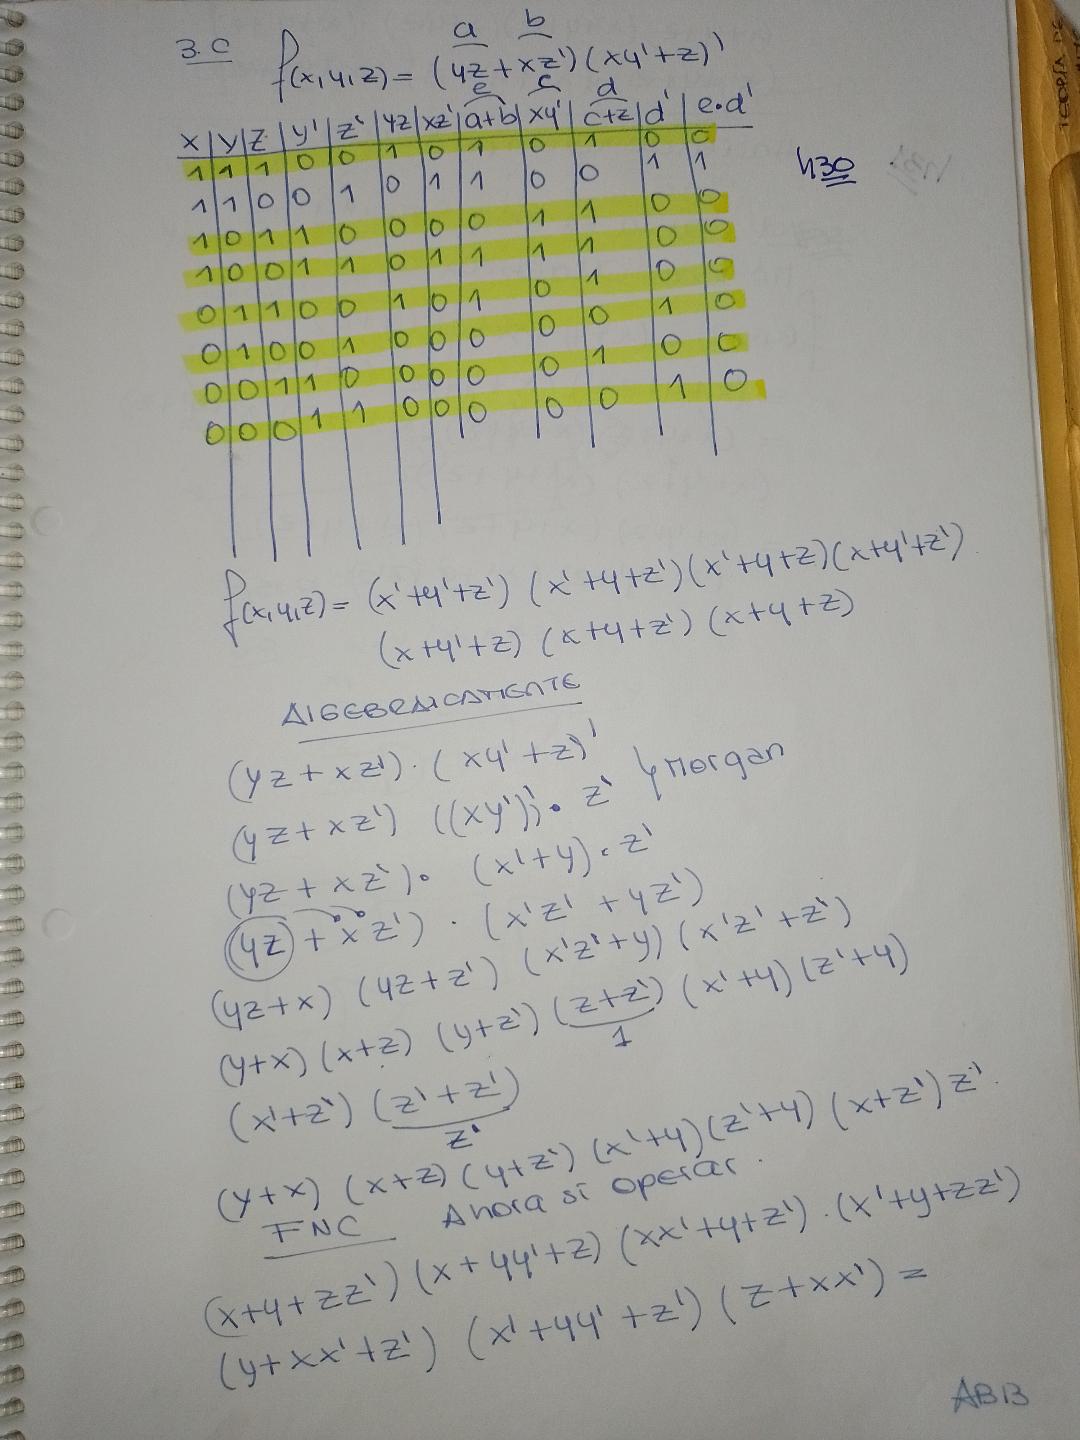 3.c f(x,y,z) = (yz + xz')(xy' + z)'
a b
e c d
x | y | z | y' | z' | yz | xz' | a+b | xy' | c+z | d' | e·d'
1 1 1 0 0 1 0 1 0 1 0 0
1 1 0 0 1 0 1 1 0 0 1 1
1 0 1 1 0 0 0 0 1 1 0 0
1 0 0 1 1 0 1 1 1 1 0 0
0 1 1 0 0 1 0 1 0 1 0 0
0 1 0 0 1 0 0 0 0 0 1 0
0 0 1 1 0 0 0 0 0 1 0 0
0 0 0 1 1 0 0 0 0 0 1 0
f(x,y,z) = (x'+y'+z') (x'+y+z')(x'+y+z)(x+y'+z')
(x+y'+z) (x+y+z') (x+y+z)
ALGEBRAICAMENTE
(yz + xz') · (xy' + z)'
(yz + xz') ((xy')') · z' Morgan
(yz + xz') · (x'+y) · z'
(yz) + xz') · (x'z' + yz')
(yz+x) (yz+z') (x'z'+y) (x'z'+z')
(y+x) (x+z) (y+z') (z+z') (x'+y) (z'+y)
1
(x'+z') (z'+z')
z'
(y+x) (x+z) (y+z') (x'+y) (z'+y) (x+z') z'.
FNC Ahora si operar.
(x+y+zz') (x+yy'+z) (xx'+y+z') · (x'+y+zz')
(y+xx'+z') (x'+yy'+z') (z+xx') =
AB13